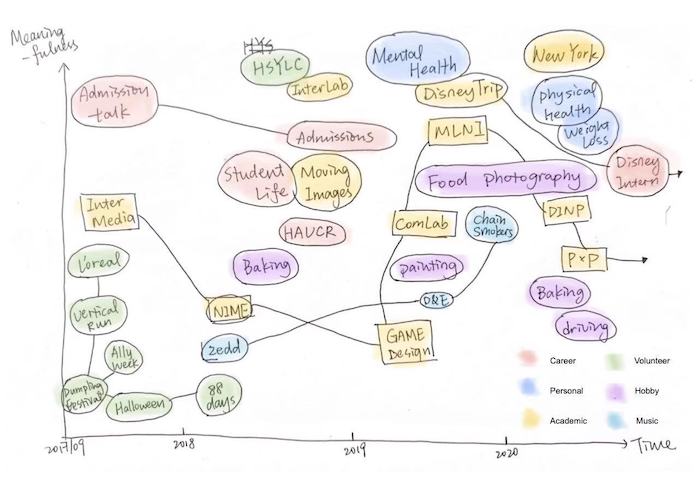 Meaning
-fulness
Admission
talk
HYS
HSYLC
InterLab
Admissions
Mental
Health
Disney Trip
MLNI
New York
physical
Health
Weight
Loss
Disney
Intern
Student
Life
Moving
Images
Food photography
Inter
Media
HAUCR
ComLab
Chain
Smokers
DINP
L'oreal
Baking
painting
P×P
Vertical
Run
NIME
D&E
Baking
Ally
Week
zedd
GAME
Design
driving
Pumpling
festival
Halloween
88
days
Career
Volunteer
Personal
Hobby
Academic
Music
2017/09
2018
2019
2020
Time